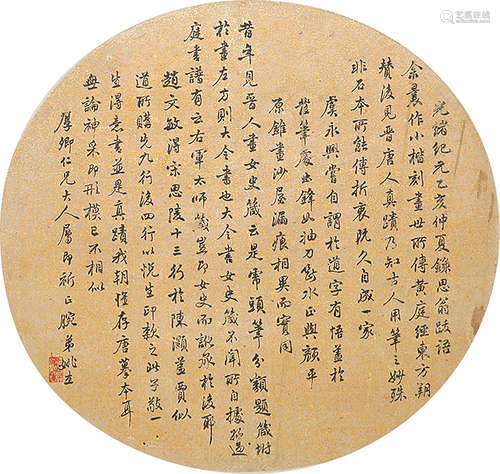 光緒紀元乙亥仲夏錄思翁跋語
余曩作小楷刻畫世所傳黃庭經東方朔
贊後見晉唐人真蹟乃知古人用筆之妙殊
非石本所能傳折衷既久自成一家
虞永興嘗自謂於道字有悟蓋於
發筆處出鋒如抽刀斷水正與顏平
原錐畫沙屋漏痕相異而實同
昔年見晉人畫女史箴云是虎頭筆分類題箴附
於畫左方則大令書也大令書女史箴不聞所自據孫過
庭書譜有云右軍太師箴豈即女史而訛於後耶
趙文敏得宋思陵十三行於陳灝蓋賈似
道所購先九行後四行以悅生印款之此子敬一
生得意書並是真蹟我朝惟存唐摹本耳
毋論神采即形模已不相似
厚卿仁兄大人屬即祈正腕 弟姚孟